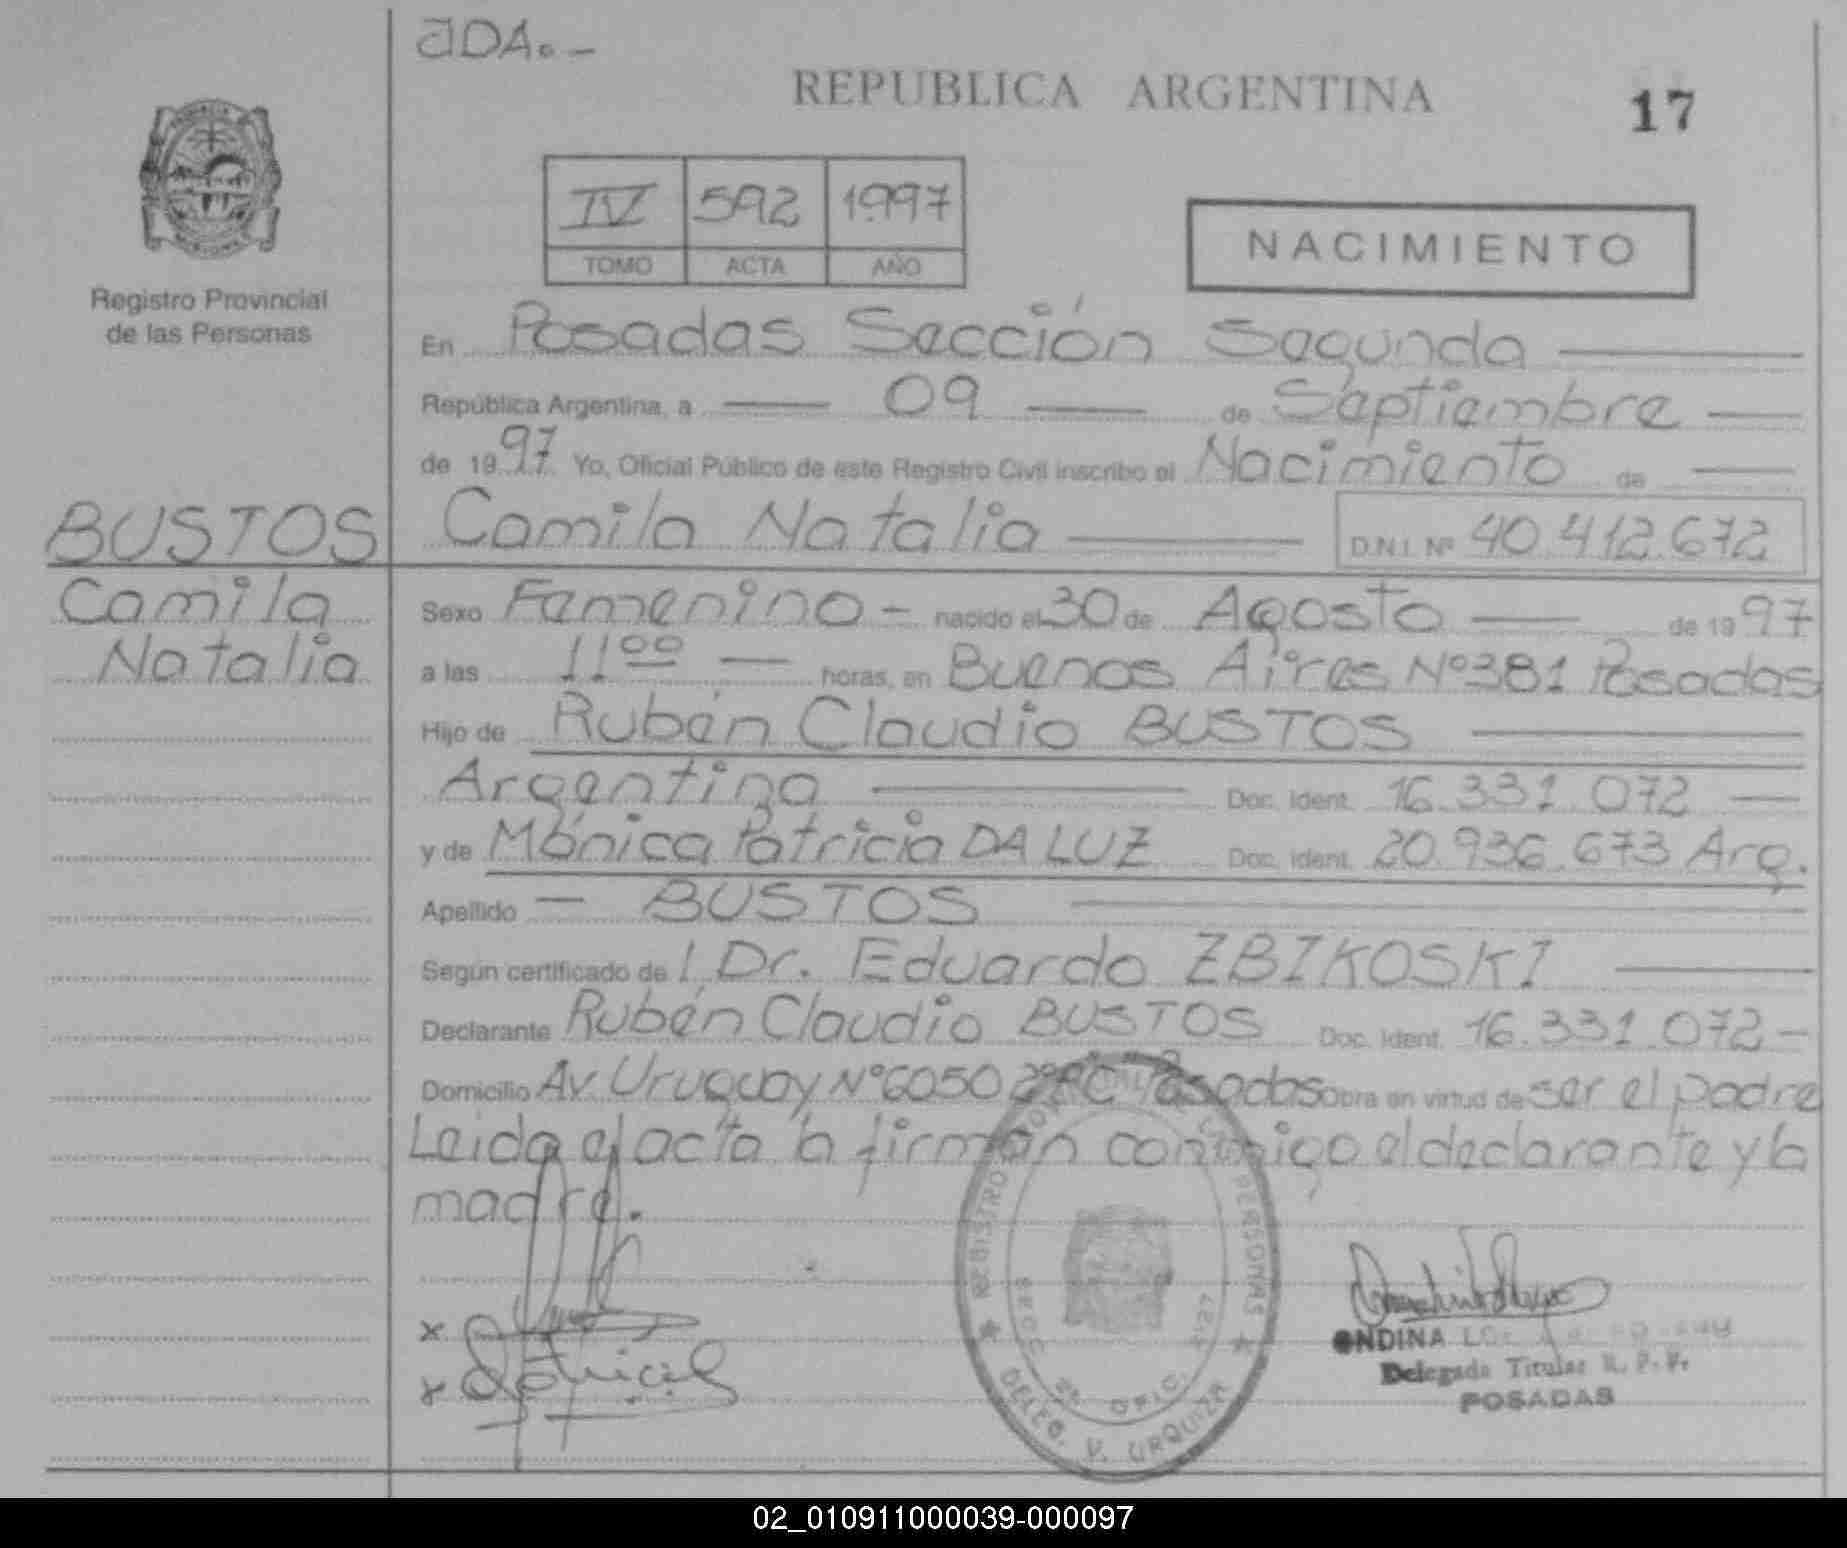 JDA.-
REPUBLICA ARGENTINA
17
IV 592 1997
TOMO ACTA AÑO
NACIMIENTO
Registro Provincial
de las Personas
En Posadas Sección Segunda
República Argentina, a 09 de Septiembre
de 1997 Yo, Oficial Público de este Registro Civil inscribo el Nacimiento de
BUSTOS
Camila
Natalia
Camila Natalia D.N.I. Nº 40.412.672
Sexo Femenino - nacido el 30 de Agosto de 1997
a las 11 00 horas, en Buenos Aires Nº 381 Posadas
Hijo de Rubén Claudio BUSTOS
Argentina Doc. Ident. 16.331.072
y de Mónica Patricia DA LUZ Doc. Ident. 20.936.673 Arg.
Apellido - BUSTOS
Según certificado de l Dr. Eduardo ZBIKOSKI
Declarante Rubén Claudio BUSTOS Doc. Ident. 16.331.072-
Domicilio Av. Uruguay Nº 6050 Posadas Obra en virtud de ser el padre
Leida el acta la firman conmigo el declarante y la
madre.
REGISTRO PROVINCIAL DE LAS PERSONAS
SECC. 2a OFIC.
DELEG. V. URQUIZA
x
x
ONDINA
Delegada Titular R. P. P.
POSADAS
02_010911000039-000097